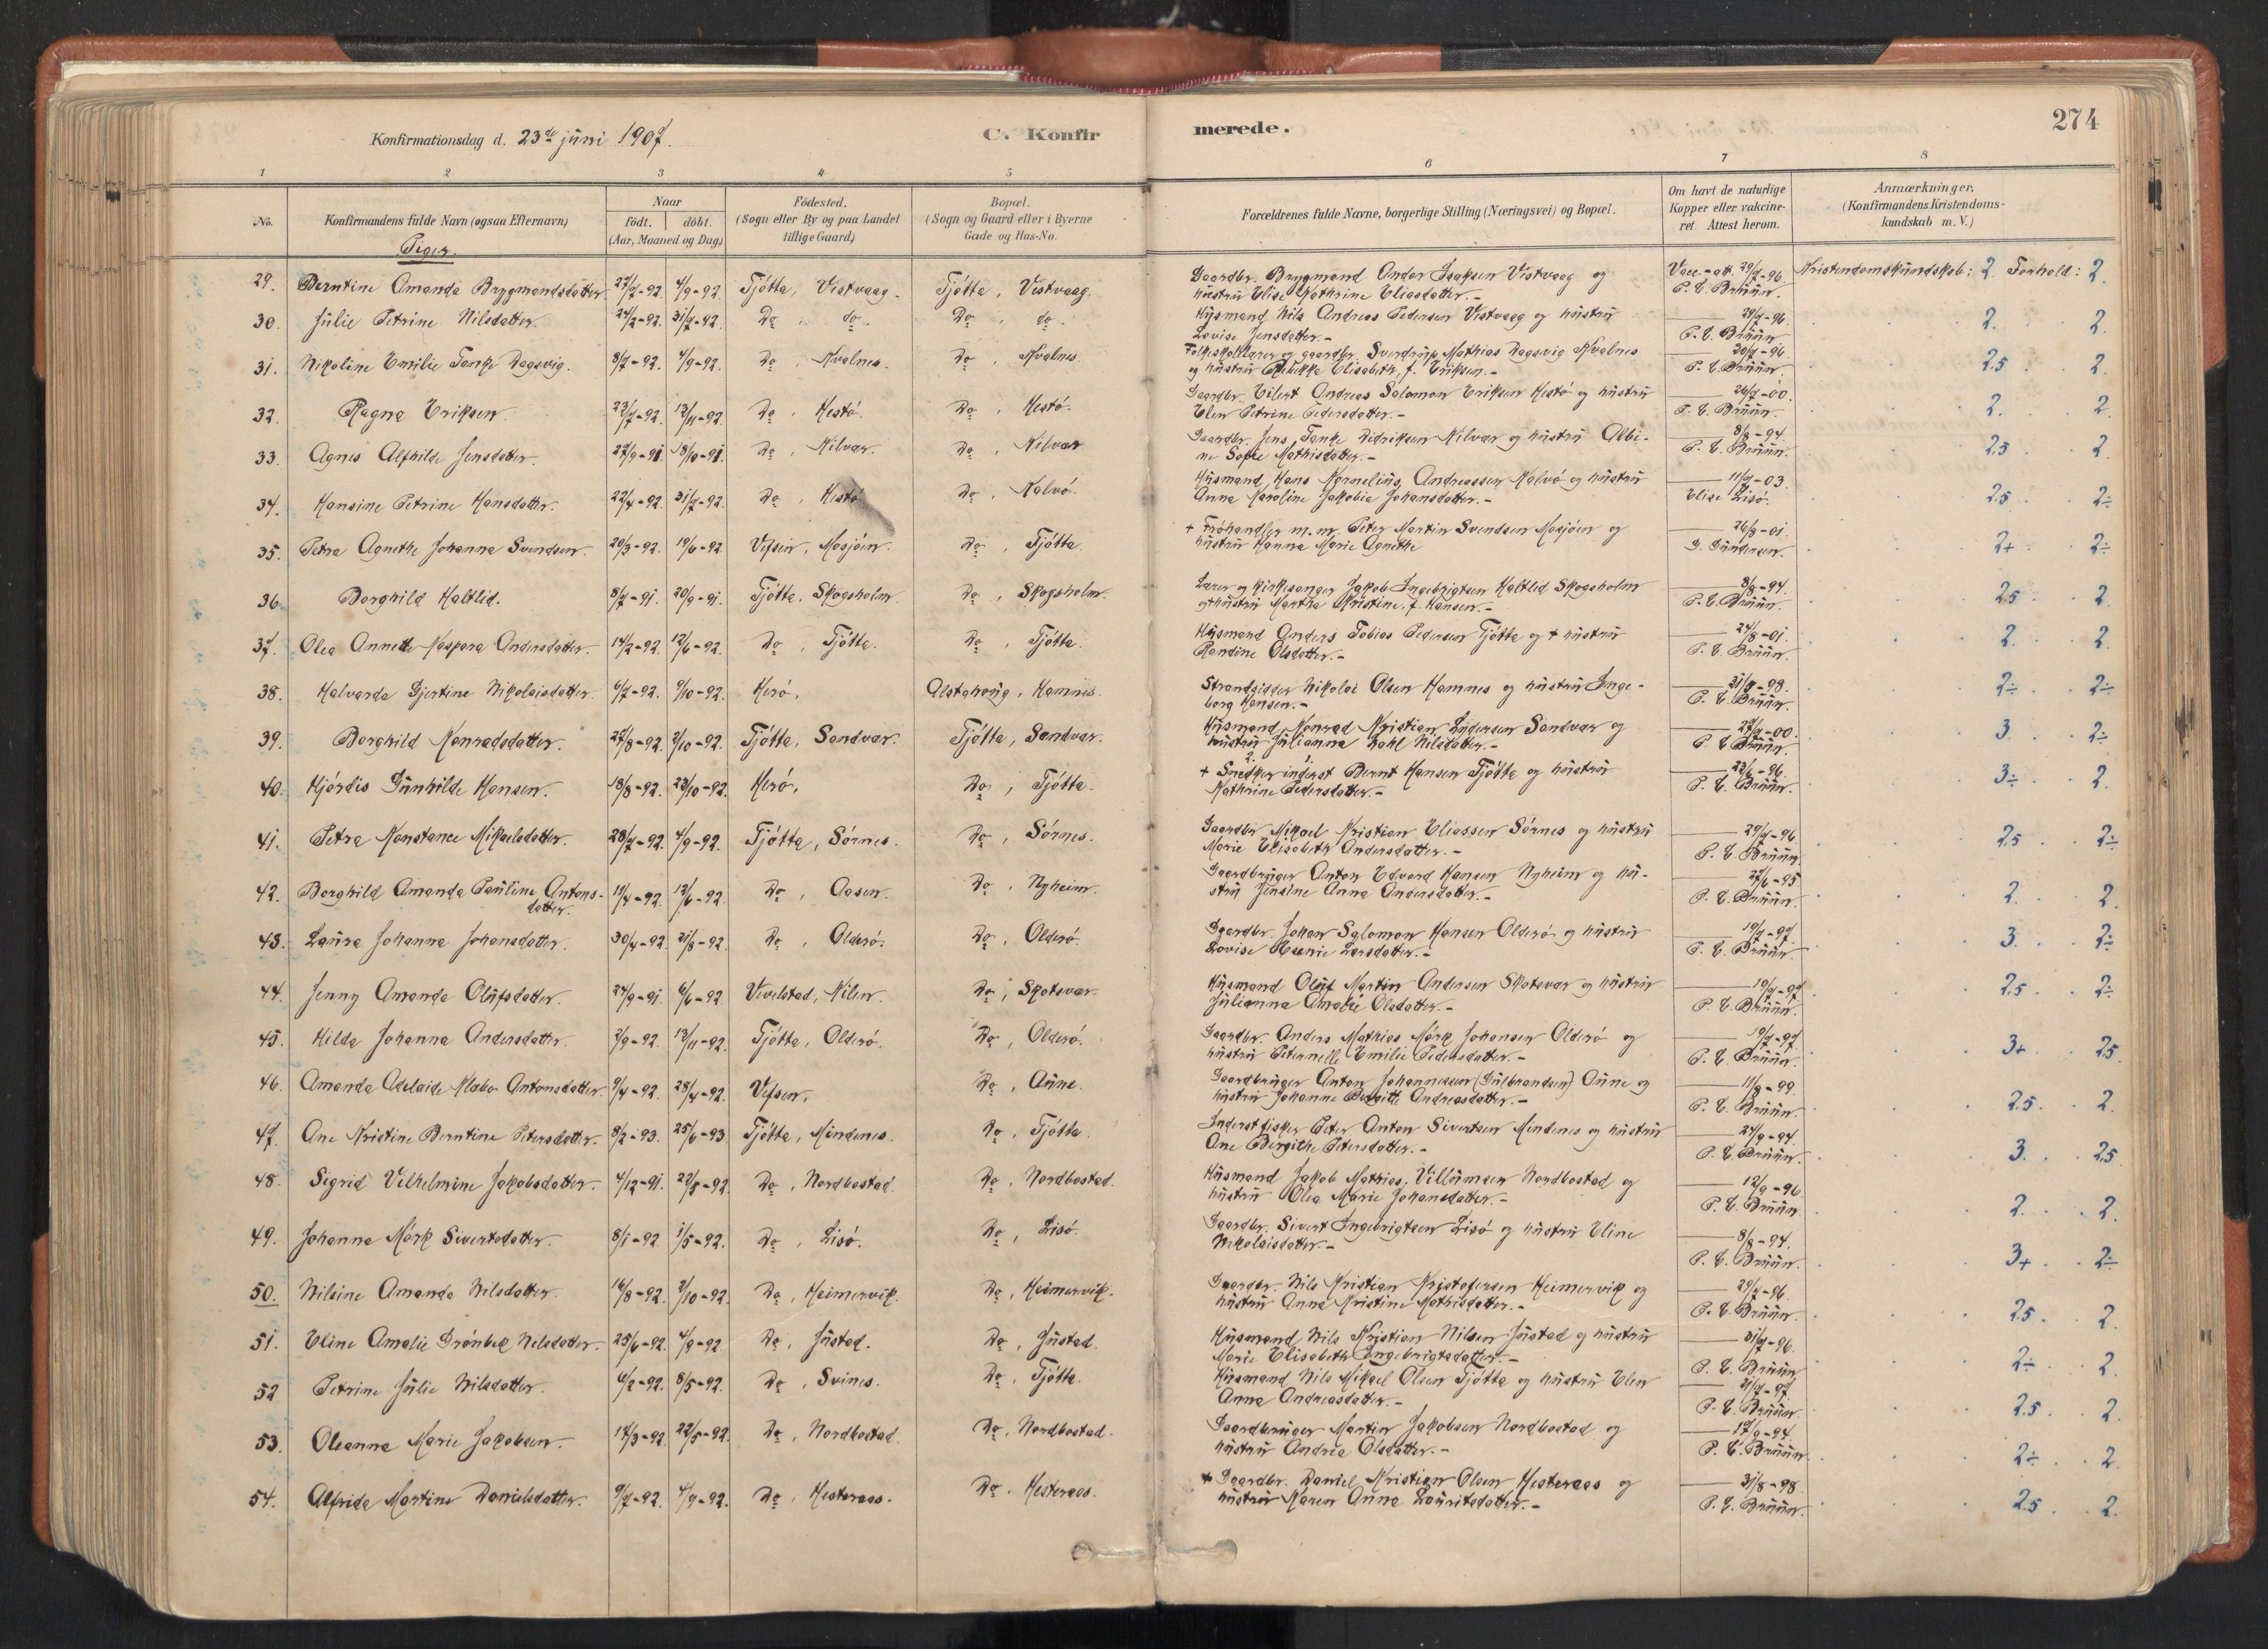 Konfirmationsdag d. 23de juni 1907.
C. Konfir
merede.
274
1 2 3 4 5 6 7 8
No.
Konfirmandens fulde Navn (ogsaa Efternavn)
Naar
födt. döbt.
(Aar, Maaned og Dag)
Födested.
(Sogn eller By og paa Landet
tillige Gaard)
Bopæl.
(Sogn og Gaard eller i Byerne
Gade og Hus-No.
Forældrenes fulde Navne, borgerlige Stilling (Næringsvei) og Bopæl.
Om havt de naturlige
Kopper eller vakcine-
ret. Attest herom.
Anmærkninger.
(Konfirmandens Kristendoms-
kundskab m. V.)
Piger.
29. Berntine Amanda Brygmandsdatter. 22/7-92. 4/9-92. Tjötta, Vistvaag. Tjötta, Vistvaag. Gaardbr. Brygmand Andor Isaksen Vistvaag og
hustru Elise Kathrine Eliasdatter.- Vacc-att. 29/7-96 P. E. Bruun. Kristendomskundskab: 2. Forhold: 2.
30. Julie Petrine Nilsdatter. 24/2-92. 31/7-92. Do, do. Do, do. Husmand Nils Andreas Pedersen Vistvaag og hustru
Lovise Jensdatter.- 29/7-96. P. E. Bruun 2. 2.
31. Nikoline Emilie Tanke Dagsvig. 8/7-92. 4/9-92. Do, Kvalnes. Do, Kvalnes. Folkeskolelærer og gaardbr. Sverdrup Mathias Dagsvig Kvalnes
og hustru Rebekka Elisabeth, f. Eriksen.- 20/7-96 P. E. Bruun. 2.5 2.
32. Ragna Eriksen. 23/7-92. 13/11-92. Do, Hestö. Do, Hestö. Gaardbr. Eilert Andreas Salomon Eriksen Hestö og hustru
Elen Petrine Pedersdatter.- 26/7-00. P. E. Bruun. 2. 2.
33. Agnes Alfhilde Jensdatter. 27/9-91. 18/10-91. Do, Kilvær. Do, Kilvær Gaardbr. Jens Tanke Didriksen Kilvær og hustru Albi-
ne Sofie Mathisdatter.- 8/8-94. P. E. Bruun. 2.5 2.
34. Hansine Petrine Hansdatter. 22/4-92. 31/7-92. Do, Hestö Do, Kalvö. Husmand Hans Kornelius Andreassen Kalvö og hustru
Anna Karoline Jakobie Johansdatter.- 11/7-03. Elise Lisö. 2.5 2÷
35. Petra Agnethe Johanna Svendsen. 20/3-92. 19/6-92 Vefsen, Mosjöen. Do, Tjötta. + Fröhandler m.m. Peter Martin Svendsen Mosjöen og
hustru Hanna Marie Agnethe 26/8-01. 2+ 2÷
36. Borghild Haltlid. 8/7-91. 20/9-91. Tjötta, Skogsholm. Do, Skogsholm. Lærer og kirkesanger Jakob Ingebrigtsen Haltlid Skogsholm
og hustru Martha Kristine, f. Hansen.- 8/8-94. P. E. Bruun. 2.5 2.
37. Olea Annette Kaspara Andersdatter. 14/2-92. 12/6-92. Do, Tjötta. Do, Tjötta. Husmand Anders Tobias Pedersen Tjötta og + hustru
Randine Olsdatter.- 24/8-01. P. E. Bruun. 2. 2.
38. Halvarda Gjertine Nikolaisdatter. 6/7-92. 9/10-92. Herö. Alstahoug, Hamnes. Strandsidder Nikolai Olsen Hamnes og hustru Inge-
borg Hansen.- 21/8-98. P. E. Bruun. 2÷ 2÷
39. Borghild Konradsdatter. 22/8-92. 2/10-92. Tjötta, Sandvær. Tjötta, Sandvær. Husmand Konrad Kristian Lydersen Sandvær og
hustru Julianna Dahl Nilsdatter.- 27/7-00. P. E. Bruun. 3. 2÷
40. Hjördis Gunhilde Hansen. 18/8-92. 23/10-92. Herö. Do, Tjötta. + Snedker inderst Bernt Hansen Tjötta og hustru
Kathrine Pedersdatter.- 23/6-96. P. E. Bruun. 3÷ 2.
41. Petra Konstance Mikaelsdatter. 28/7-92. 4/9-92. Tjötta, Sörnes. Do, Sörnes. Gaardbr. Mikael Kristian Eliassen Sörnes og hustru
Marie Elisabeth Andersdatter.- 29/7-96. P. E. Bruun 2.5 2÷
42. Borghild Amanda Pauline Antons-
datter. 11/4-92. 12/6-92. Do, Aasen. Do, Nyheim. Gaardbruger Anton Edvard Hansen Nyheim og hu-
stru Jensine Anna Andersdatter.- 27/6-95 P. E. Bruun. 2. 2.
43. Laura Johanna Johansdatter. 30/4-92. 21/8-92. Do, Olderö. Do, Olderö. Gaardbr. Johan Salomon Hansen Olderö og hustru
Lovise Marie Larsdatter.- 19/7-97. P. E. Bruun. 3. 2÷
44. Jenny Amanda Olufsdatter. 24/9-91. 6/6-92 Vevelstad, Kilen. Do, Skotsvær. Husmand Oluf Martin Andersen Skotsvær og hustru
Julianna Amalie Olsdatter.- 19/7-97 P. E. Bruun. 2.5 2÷
45. Hilda Johanna Andersdatter. 2/9-92. 13/11-92. Tjötta, Olderö. Do, Olderö. Gaardbr. Anders Mathias Mörk Johansen Olderö og
hustru Peternelle Emilie Pedersdatter.- 19/7-97. P. E. Bruun. 3+ 2.5
46. Amanda Adelaide Klabo Antonsdatter. 9/4-92. 28/4-92. Vefsen. Do, Aune. Gaardbruger Anton Johannessen (Gulbrandsen) Aune og
hustru Johanne Birgitte Andreasdatter.- 11/8-99. P. E. Bruun. 2.5 2.
47. Ane Kristine Berntine Petersdatter. 8/2-93. 25/6-93. Tjötta, Mindenes. Do, Tjötta. Inderst fisker Peter Anton Sivertsen Mindenes og hustru
Ane Bergithe Petersdatter.- 24/9-94. P. E. Bruun. 3. 2.5
48. Sigrid Vilhelmine Jakobsdatter. 4/12-91. 22/5-92. Do, Nordbostad. Do, Nordbostad. Husmand Jakob Mathias Villumsen Nordbostad og
hustru Olea Marie Johansdatter.- 12/9-96. P. E. Bruun. 2. 2.
49. Johanna Mörk Sivertsdatter. 8/1-92. 1/5-92. Do, Lisö. Do, Lisö. Gaardbr. Sivert Ingebrigtsen Lisö og hustru Eline
Nikolaisdatter.- 8/8-94. P. E. Bruun. 3+ 2÷
50. Nilsine Amanda Nilsdatter. 16/8-92. 2/10-92. Do, Heimervik. Do, Heimervik. Gaardbr. Nils Kristian Kristofersen Heimervik og
hustru Anna Kristine Mathisdatter.- 29/7-96. P. E. Bruun. 2.5 2.
51. Eline Amalie Grönbek Nilsdatter. 25/6-92. 4/9-92. Do, Justad. Do, Justad. Husmand Nils Kristian Nilsen Justad og hustru
Marie Elisabeth Ingebrigtsdatter.- 31/7-96. P. E. Bruun 2÷ 2.
52 Petrine Julie Nilsdatter. 4/2-92. 8/5-92. Do, Svines. Do, Tjötta. Husmand Nils Mikael Olsen Tjötta og hustru Elen
Anna Andreasdatter.- 21/7-97. P. E. Bruun. 2.5 2.
53. Oleanna Marie Jakobsen. 17/3-92. 22/5-92. Do, Nordbostad. Do, Nordbostad. Gaardbruger Martin Jakobsen Nordbostad og
hustru Andrea Olsdatter.- 17/9-94. P. E. Bruun. 2÷ 2.
54. Alfrida Martine Danielsdatter. 9/7-92. 4/9-92. Do, Hesteraas. Do, Hesteraas. + Gaardbr. Daniel Kristian Olsen Hesteraas og
hustru Maren Anna Lauritsdatter.- 31/8-98. P. E. Bruun. 2.5 2.